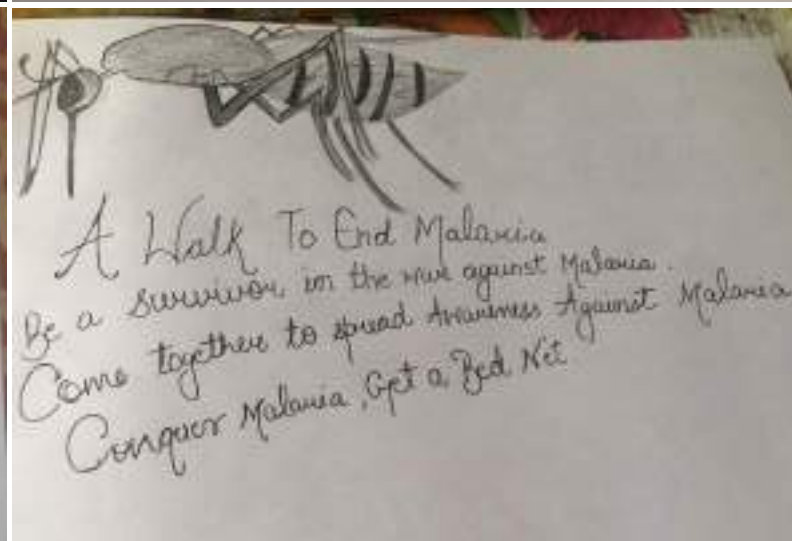 A Walk To End Malaria
Be a survivor in the war against Malaria.
Come together to spread Awareness Against Malaria
Conquer Malaria, Get a Bed Net